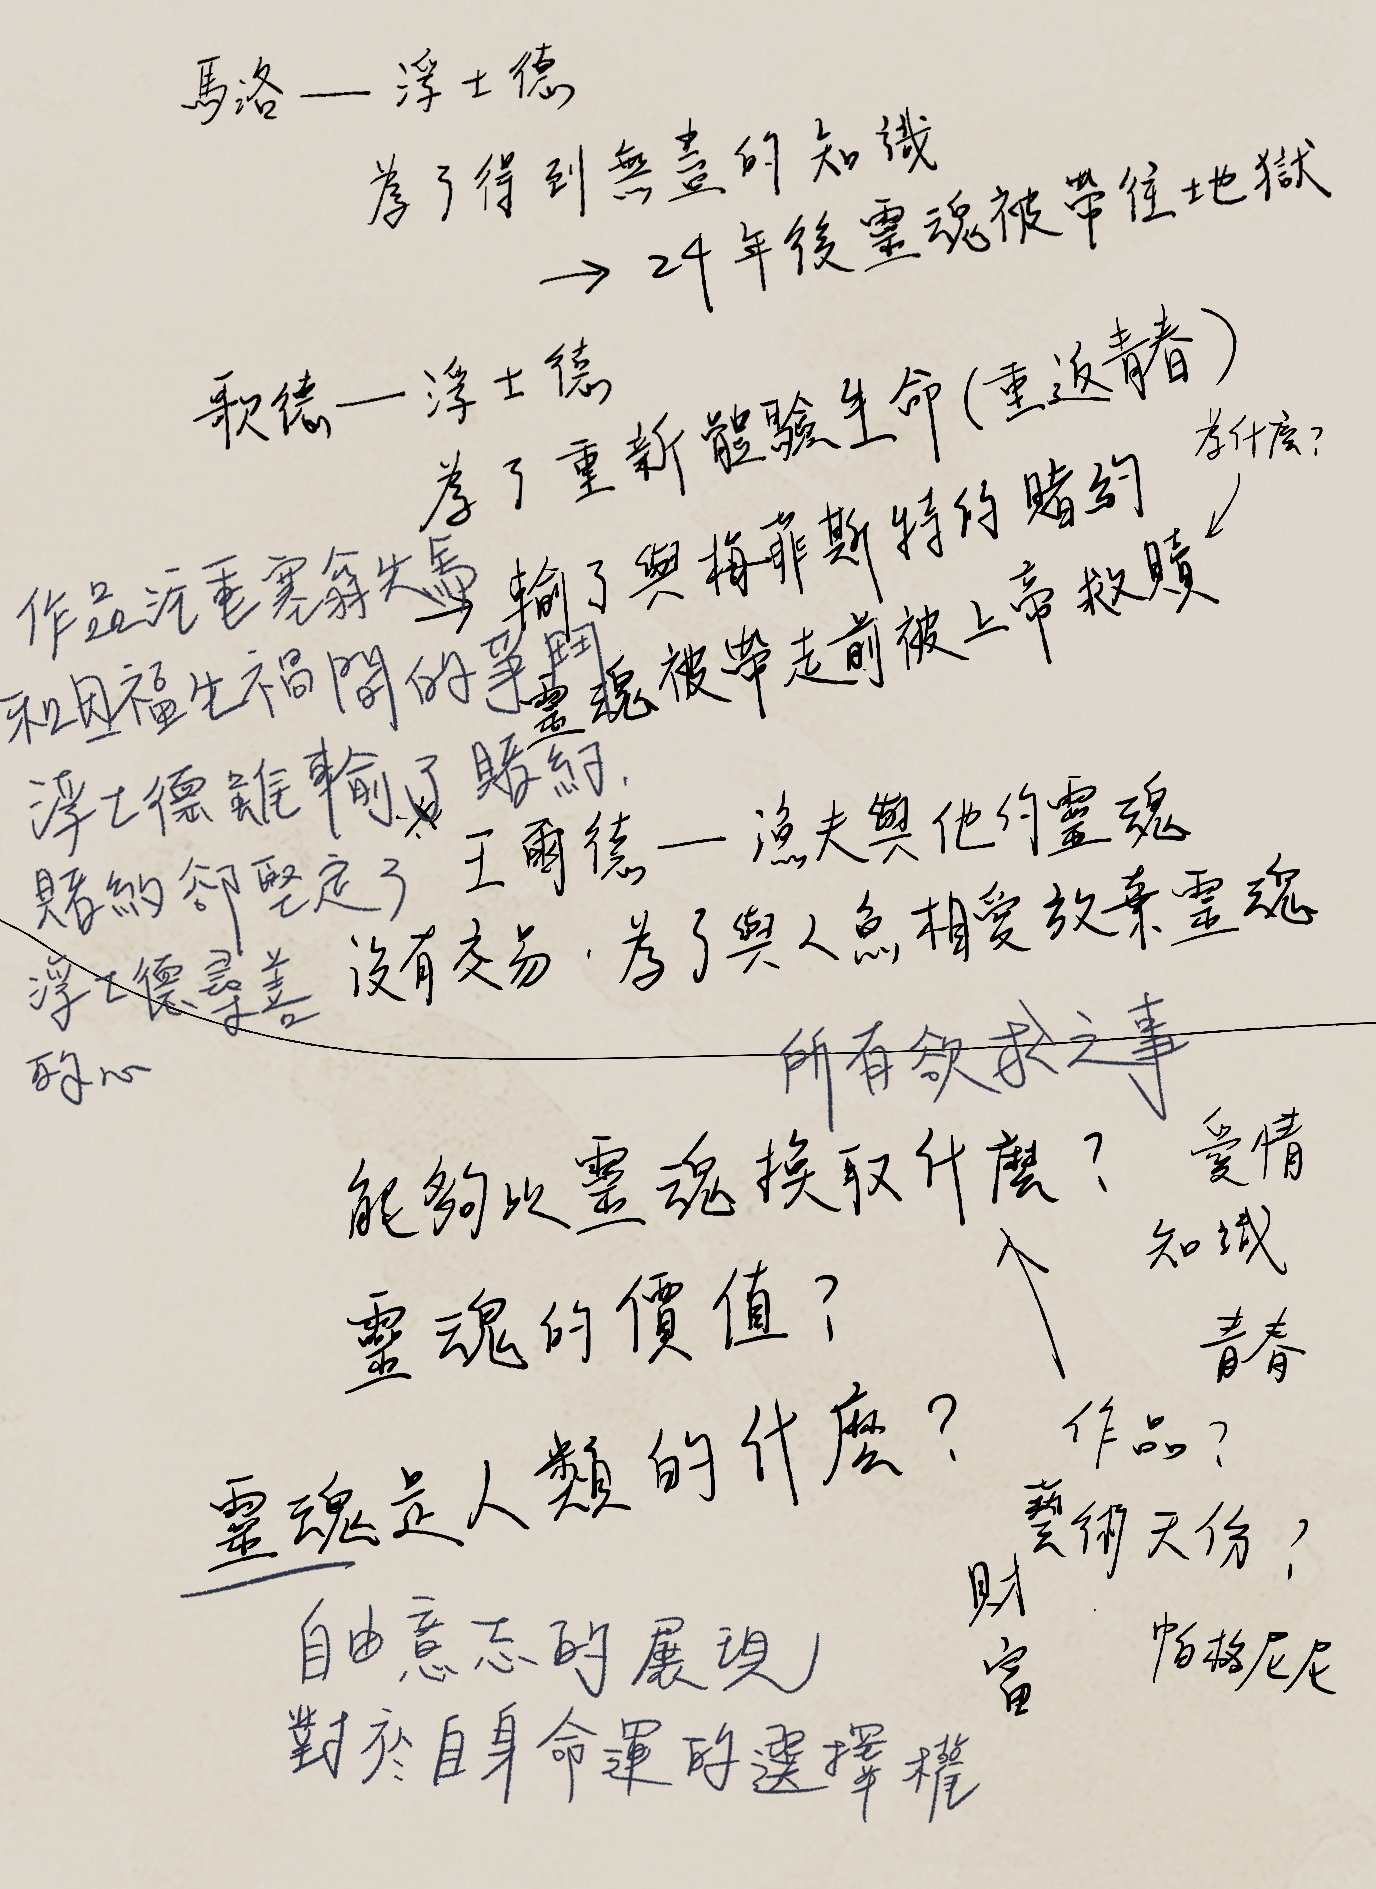 馬洛—浮士德
為了得到無盡的知識
→ 24年後靈魂被帶往地獄
歌德—浮士德
為了重新體驗生命(重返青春)
為什麼?
→ 輸了與梅菲斯特的賭約
靈魂被帶走前被上帝救贖
作品注重塞翁失馬
和因福生禍間的爭鬥
浮士德雖輸了賭約,
賭約卻堅定了
浮士德尋善
的心
王爾德—漁夫與他的靈魂
沒有交易,為了與人魚相愛放棄靈魂
所有欲求之事
能夠以靈魂換取什麼?
愛情
知識
青春
作品?
藝術天份?
帕格尼尼
財富
靈魂的價值?
靈魂是人類的什麼?
自由意志的展現
對於自身命運的選擇權